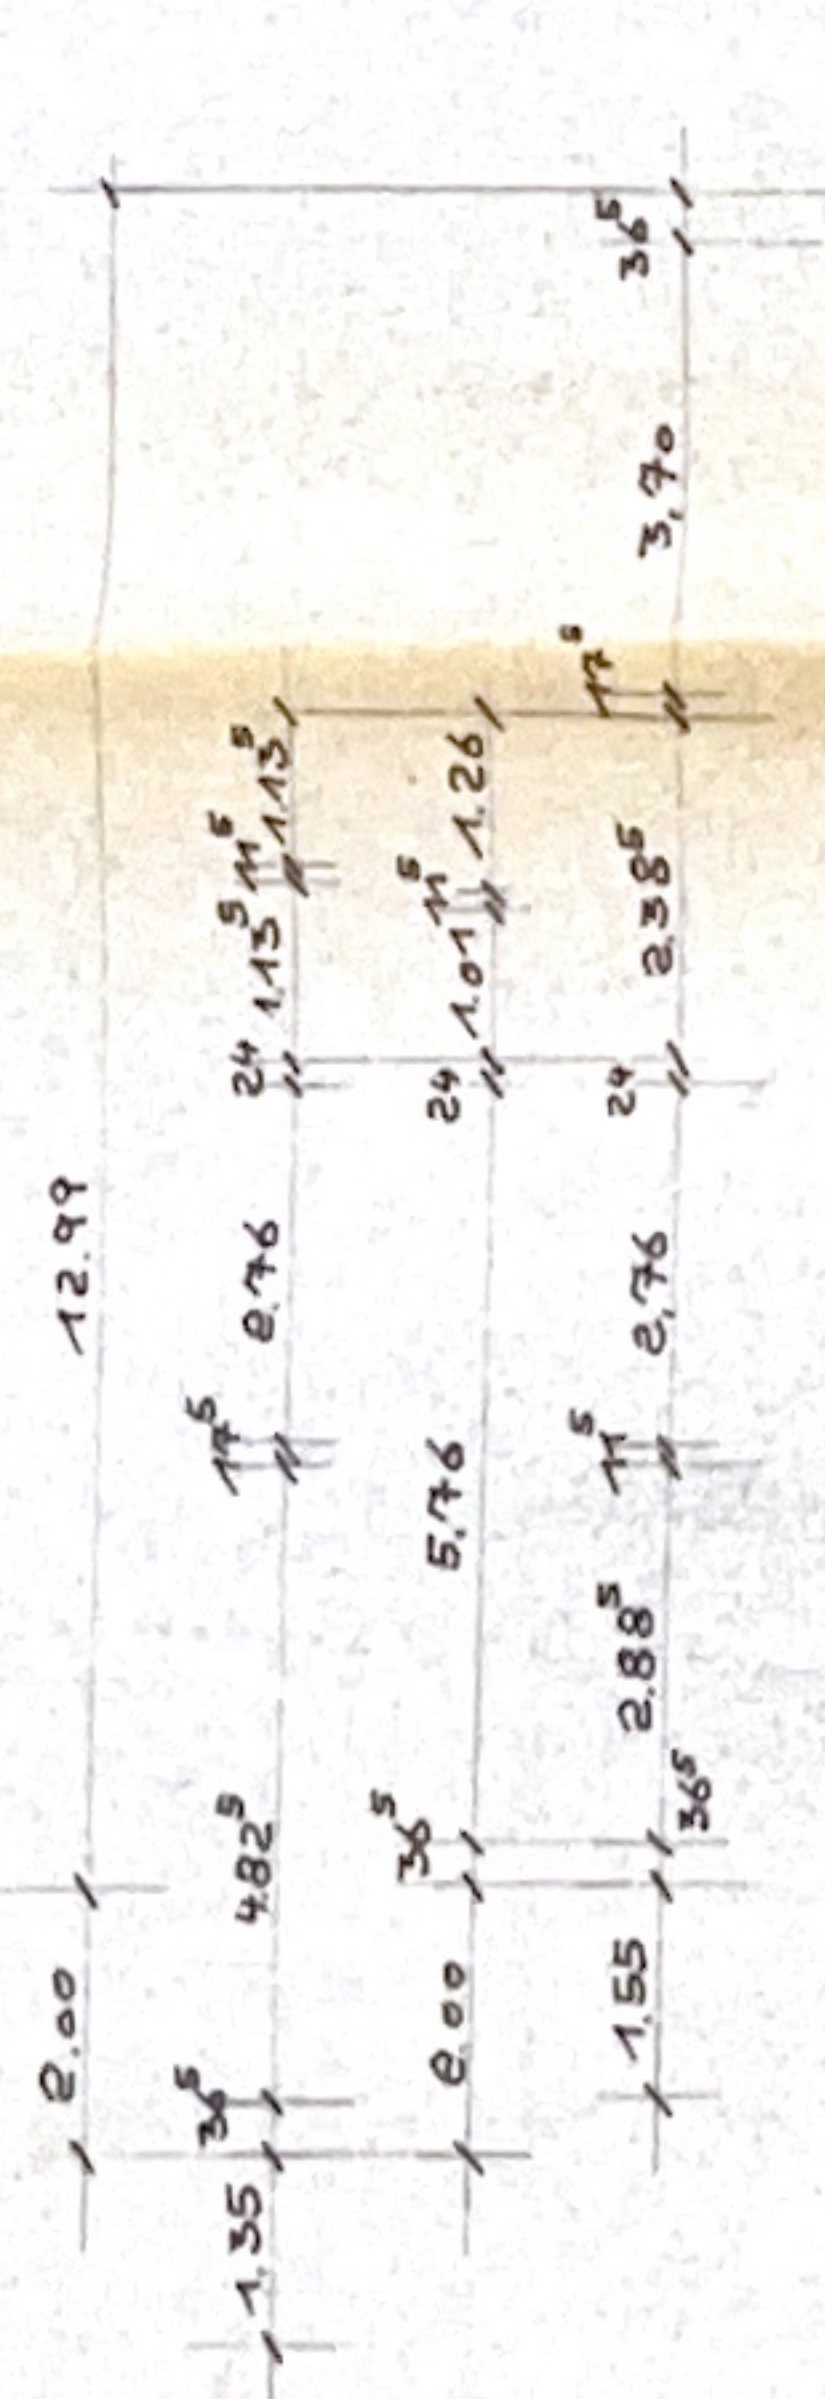 2.00 12.99
1.35 36⁵ 4.82⁵ 17⁵ 2.76 24 1.13⁵ 11⁵ 1.13⁵
2.00 36⁵ 5.76 24 1.01 11⁵ 1.26
1.55 36⁵ 2.88⁵ 11⁵ 2,76 24 2.38⁵ 17⁵ 3,70 36⁵